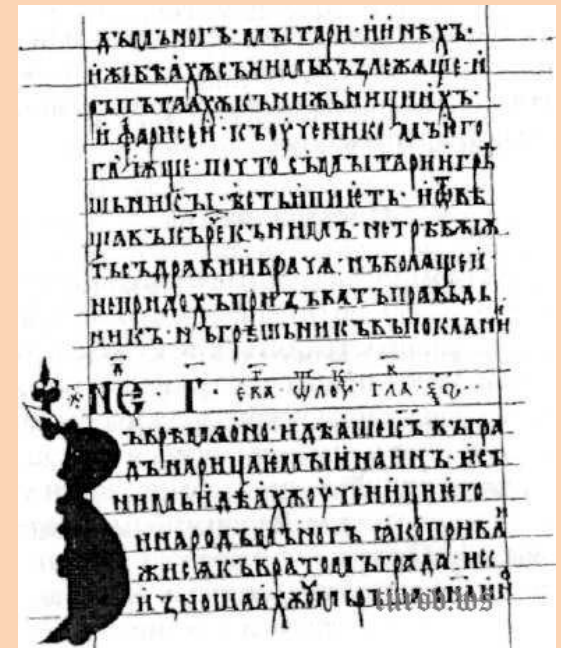 дъмъногъ · мытари · и инѣхъ ·
иже бѣахѫ съ нимь възлежаще · и
ръпътаахѫ кънижьници ихъ ·
и фарисеи · къ оученикомъ его
гл҃ѭще · почто съ мытари и грѣ
шьникы · ѣсть и пиѥть · и ѿвѣ
щавъ ис҃ъ рⷱе къ нимъ · не трѣбѫѭ
ть съдравии врача · нъ болащеи ·
не придохъ призъватъ правьдь
никъ · нъ грѣшьникъ въ покаани
НЕ · Г҃ · ѿ лоуⷦ гла
ъ врѣмѧ оно · идѣаше ис҃ въ гра
дъ нарицаемыи наинъ · и съ
нимь идѣахѫ оученици его
и народъ мъногъ ꙗко
жисѧ къ вратомъ града · и се
изношаахѫ
turov.ws